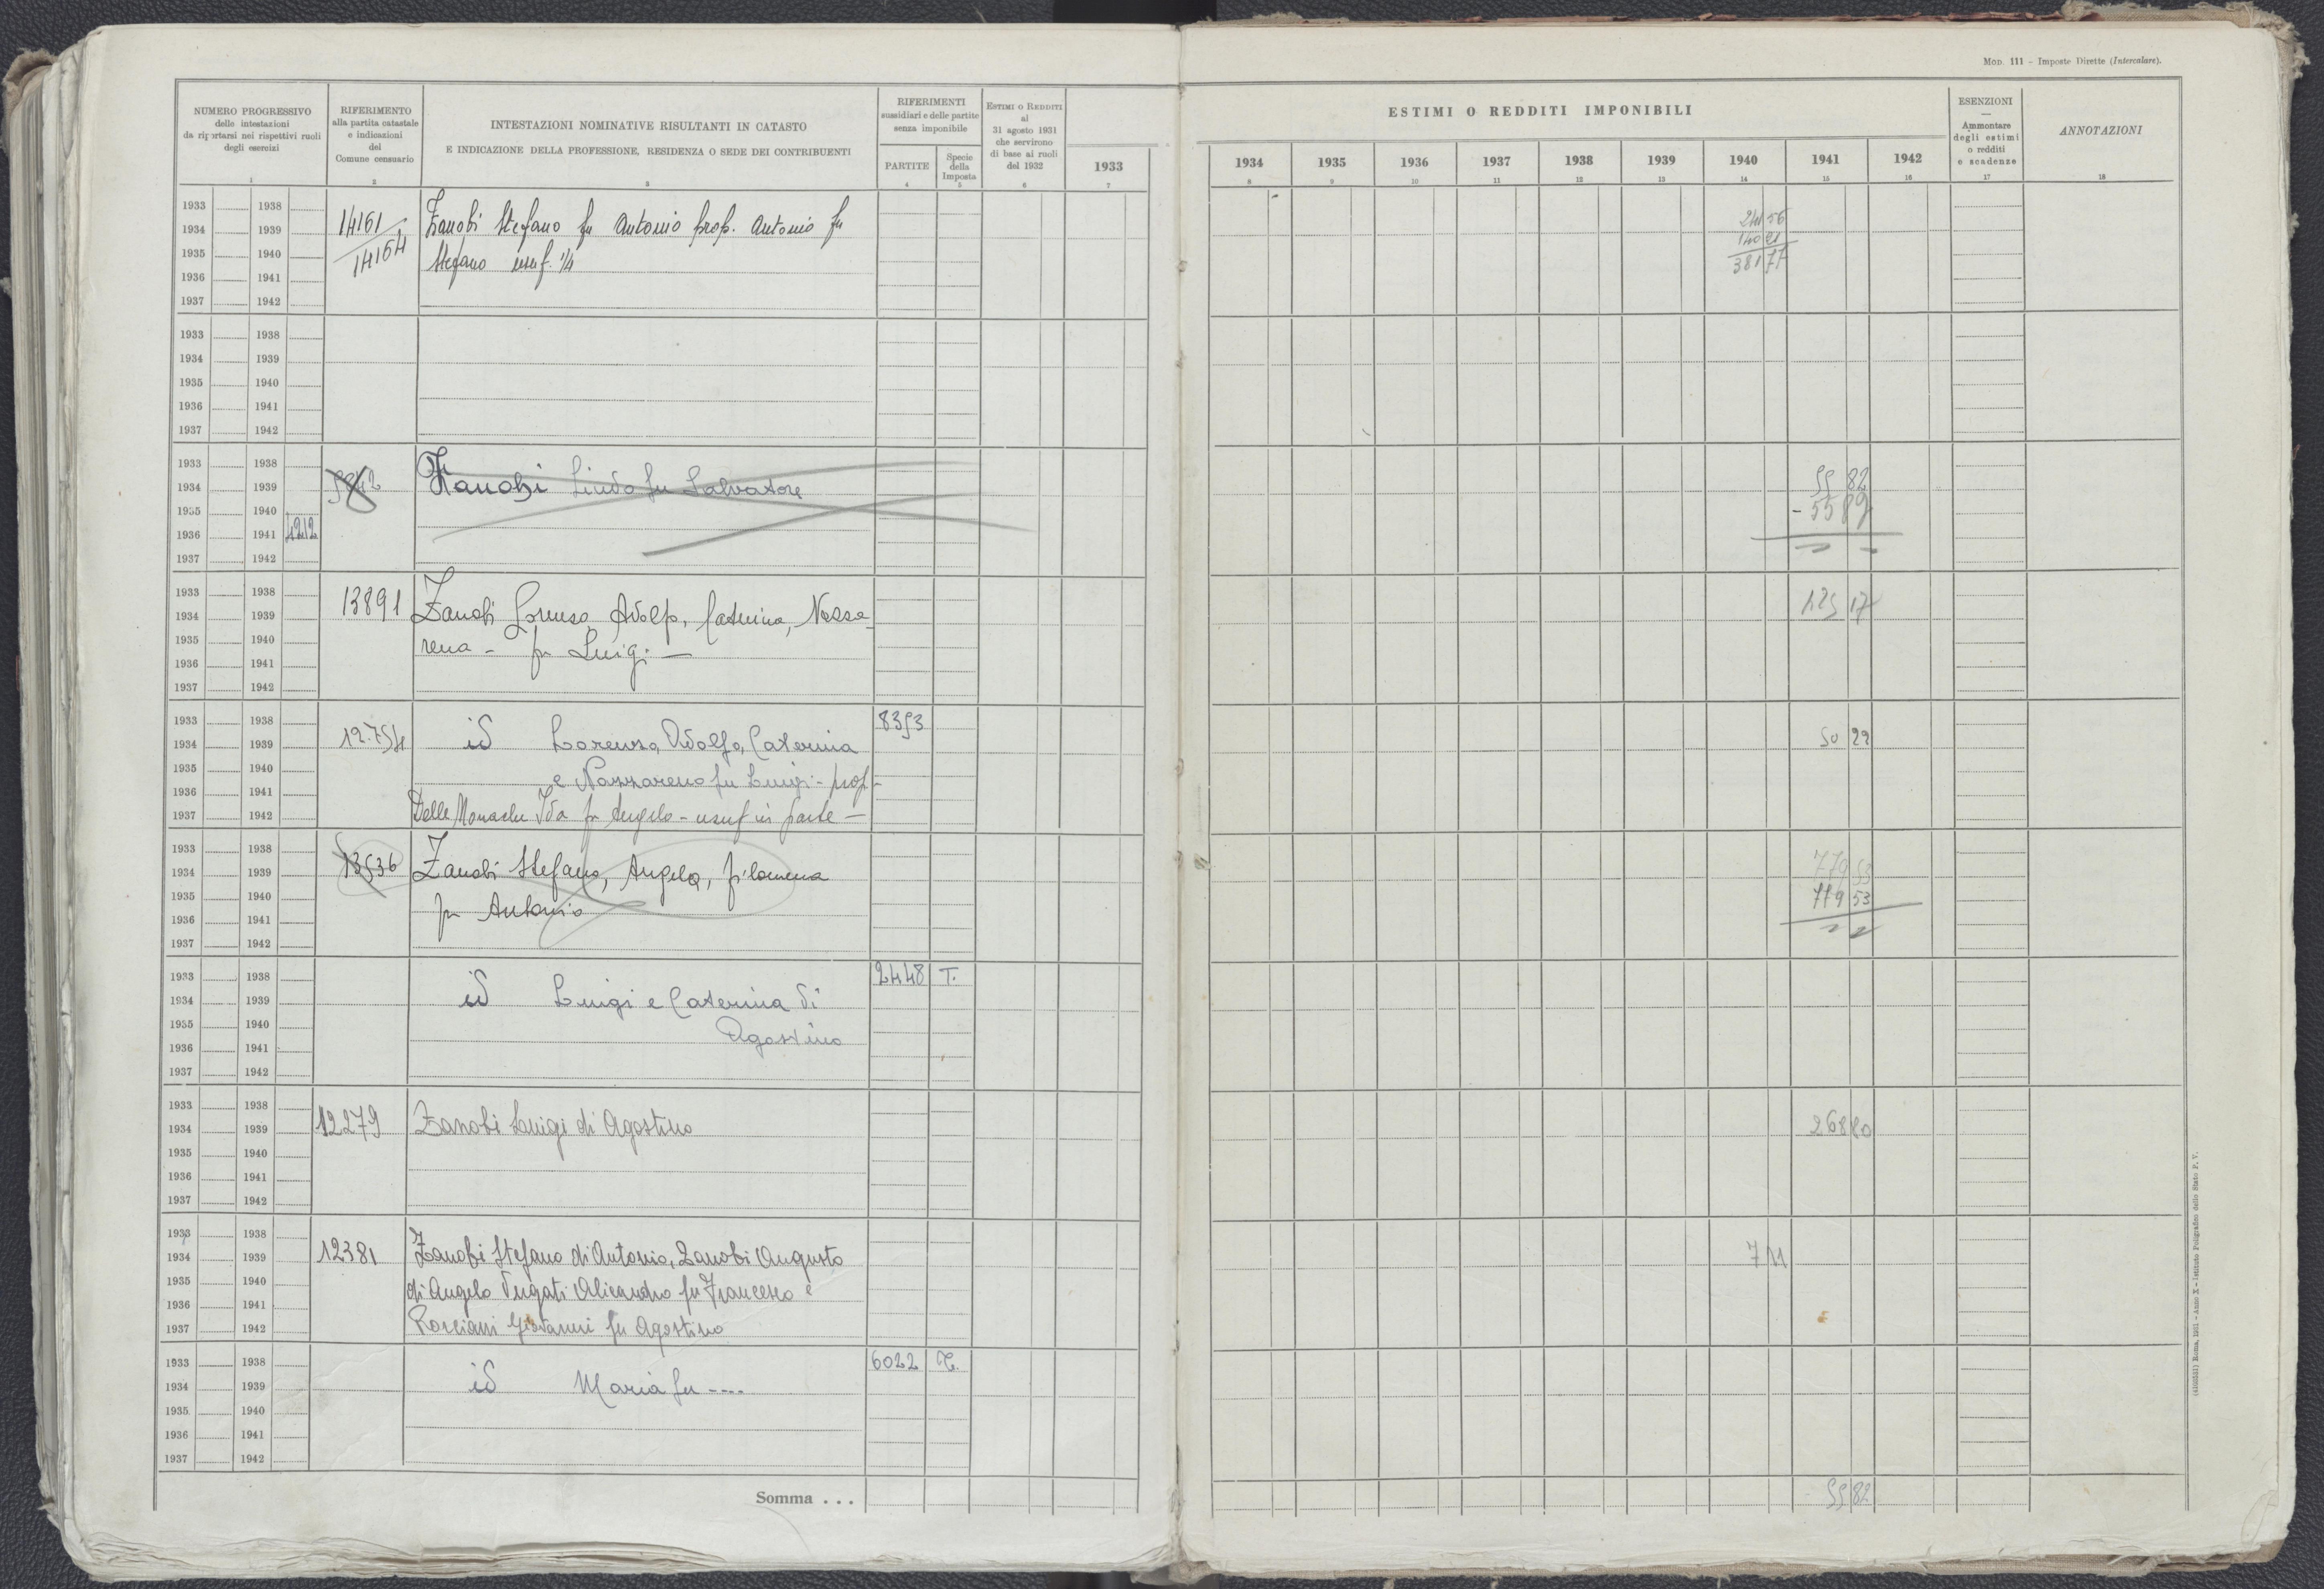 Mod. 111 - Imposte Dirette (Intercalare).
NUMERO PROGRESSIVO
delle intestazioni
da riportarsi nei rispettivi ruoli
degli esercizi
1
RIFERIMENTO
alla partita catastale
e indicazioni
del
Comune censuario
2
INTESTAZIONI NOMINATIVE RISULTANTI IN CATASTO
E INDICAZIONE DELLA PROFESSIONE, RESIDENZA O SEDE DEI CONTRIBUENTI
3
RIFERIMENTI
sussidiari e delle partite
senza imponibile
PARTITE
4
Specie
della
Imposta
5
ESTIMI O REDDITI
al
31 agosto 1931
che servirono
di base ai ruoli
del 1932
6
1933
7
ESTIMI O REDDITI IMPONIBILI
1934 1935 1936 1937 1938 1939 1940 1941 1942
8 9 10 11 12 13 14 15 16
ESENZIONI
—
Ammontare
degli estimi
o redditi
e scadenze
17
ANNOTAZIONI
18
1933 1938
1934 1939
1935 1940
1936 1941
1937 1942
14161
14164
Zanobi Stefano fu Antonio prop. Antonio fu
Stefano usuf. 1/4
241 56
140 21
381 77
1933 1938
1934 1939
1935 1940
1936 1941
1937 1942
1933 1938
1934 1939
1935 1940
1936 1941 4212
1937 1942
Zanobi Linda fu Salvatore
55 82
- 55 82
1933 1938
1934 1939
1935 1940
1936 1941
1937 1942
13891
Zanobi Lorenzo, Adolfo, Caterina, Nazza-
rena - fu Luigi -
125 17
1933 1938
1934 1939
1935 1940
1936 1941
1937 1942
12.754
id Lorenzo, Adolfo, Caterina
e Nazzareno fu Luigi - prop -
Delle Monache Ida fu Angelo - usuf in parte -
8353
50 22
1933 1938
1934 1939
1935 1940
1936 1941
1937 1942
13536
Zanobi Stefano, Angelo, Filomena
fu Antonio
779 53
779 53
1933 1938
1934 1939
1935 1940
1936 1941
1937 1942
id Luigi e Caterina di
Agostino
2448 T.
1933 1938
1934 1939
1935 1940
1936 1941
1937 1942
12279
Zanobi Luigi di Agostino
268 80
1933 1938
1934 1939
1935 1940
1936 1941
1937 1942
12381
Zanobi Stefano di Antonio, Zanobi Augusto
di Angelo Alicandro fu Francesco e
Porciani Giovanni fu Agostino
7 11
1933 1938
1934 1939
1935 1940
1936 1941
1937 1942
id Maria fu ----
6022 T.
Somma . . .
55 82
(4103551) Roma, 1931 - Anno X - Istituto Poligrafico dello Stato P. V.